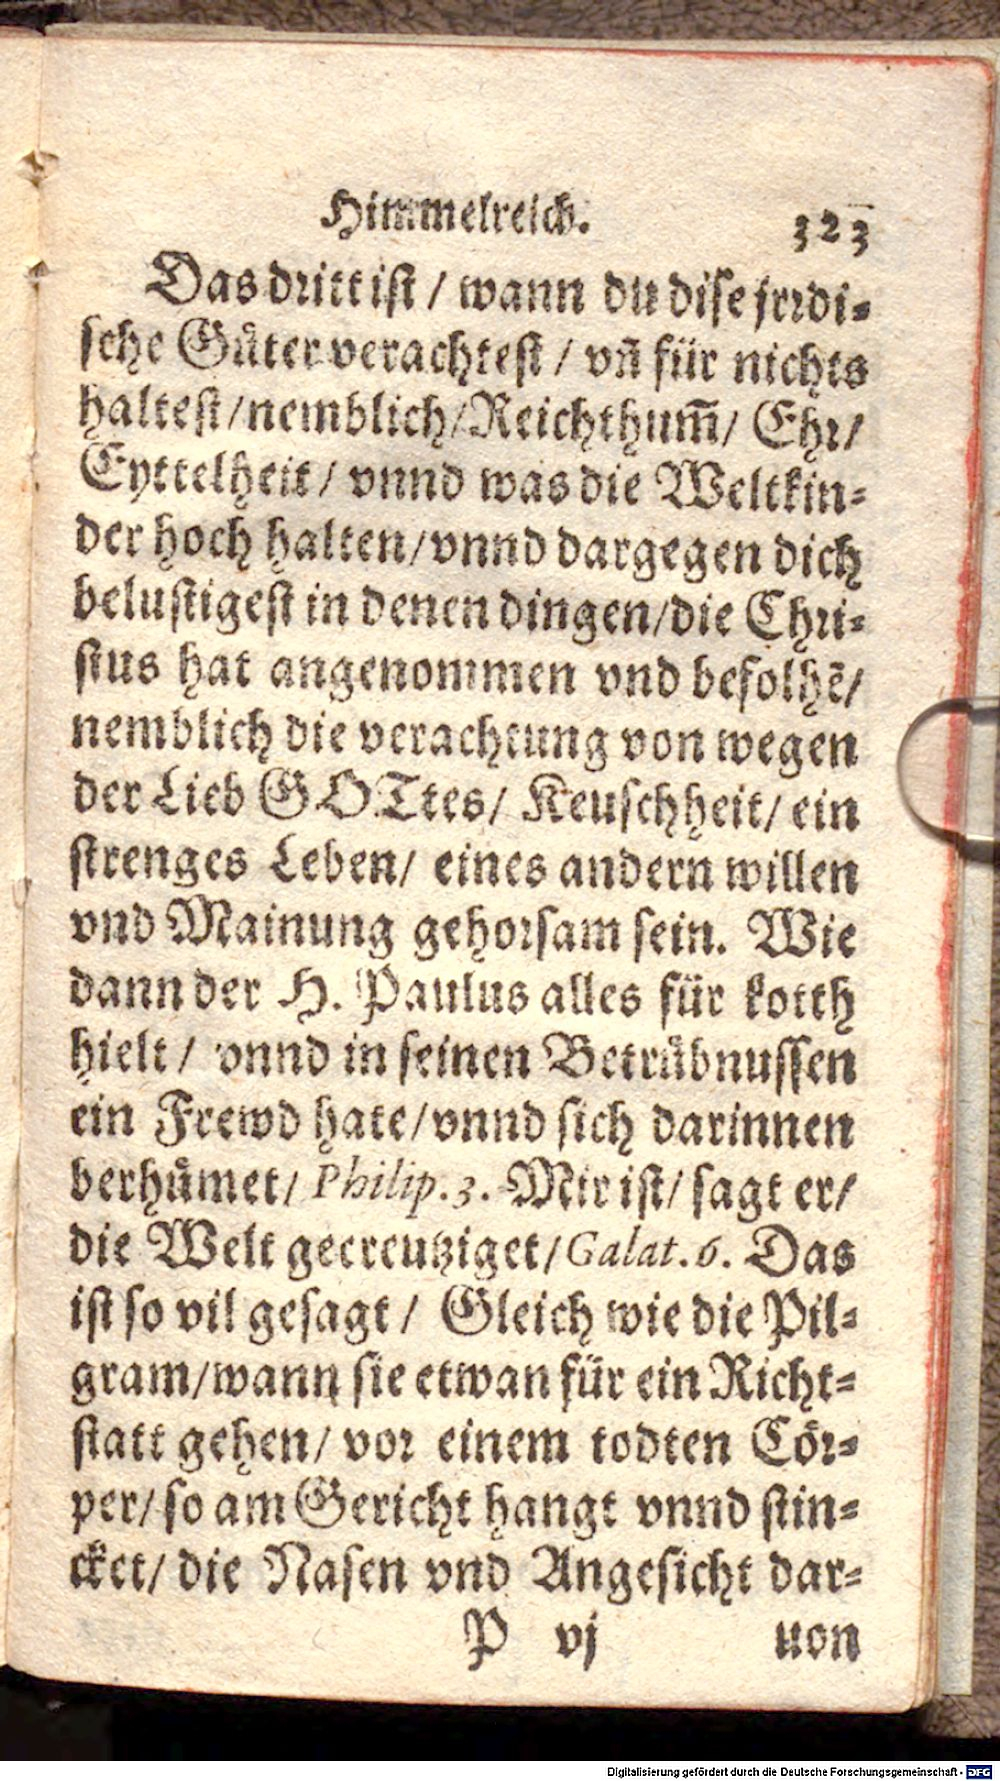 Himmelreich. 323
Das dritt ist / wann du dise jrrdi-
sche Gůter verachtest / vn̄ für nichts
haltest/nemblich/Reichthum̄/ Ehr/
Eyttelheit/ vnnd was die Weltkin-
der hoch halten/vnnd dargegen dich
belustigest in denen dingen/die Chri-
stus hat angenommen vnd befolhẽ/
nemblich die verachtung von wegen
der Lieb GOTtes/ Keuschheit/ ein
strenges Leben/ eines andern willen
vnd Mainung gehorsam sein. Wie
dann der H. Paulus alles für kotth
hielt / vnnd in seinen Betrůbnussen
ein Frewd hate/vnnd sich darinnen
berhůmet/ Philip. 3. Mir ist/ sagt er/
die Welt gecreutziget/Galat. 6. Das
ist so vil gesagt / Gleich wie die Pil-
gram/wann sie etwan für ein Richt-
statt gehen/ vor einem todten Cör-
per/ so am Gericht hangt vnnd stin-
cket/ die Nasen vnd Angesicht dar-
P vj uon
Digitalisierung gefördert durch die Deutsche Forschungsgemeinschaft - DFG